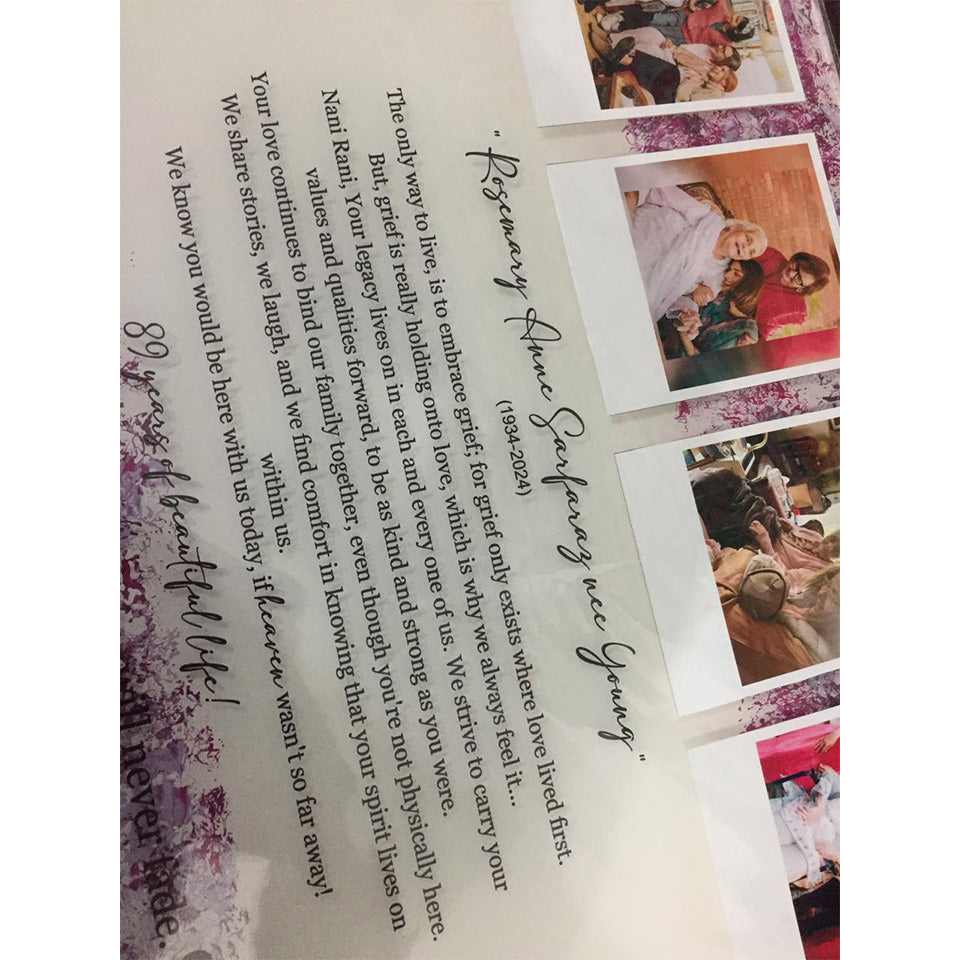 "Rosemary Anne Sarfaraz nee Young"
(1934-2024)
The only way to live, is to embrace grief; for grief only exists where love lived first.
But, grief is really holding onto love, which is why we always feel it...
Nani Rani, Your legacy lives on in each and every one of us. We strive to carry your
values and qualities forward, to be as kind and strong as you were.
Your love continues to bind our family together, even though you're not physically here.
We share stories, we laugh, and we find comfort in knowing that your spirit lives on
within us.
We know you would be here with us today, if heaven wasn't so far away!
89 years of beautiful life!
never fade.